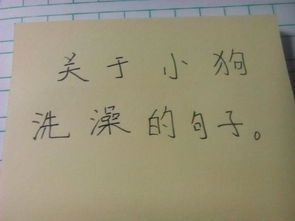 关于小狗
洗澡的句子。